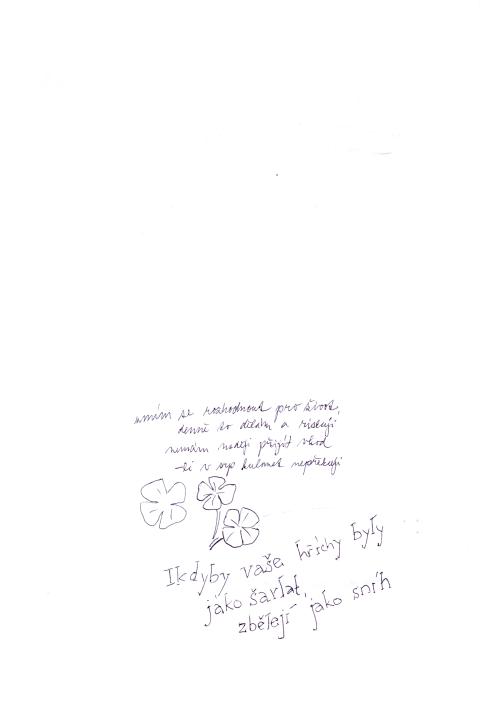 umím se rozhodnout pro život,
denně to dělám a riskuji
nemám naději přijít vhod
-li v srp kulomet nepřekuji
Ikdyby vaše hříchy byly
jako šarlat,
zbělejí jako sníh